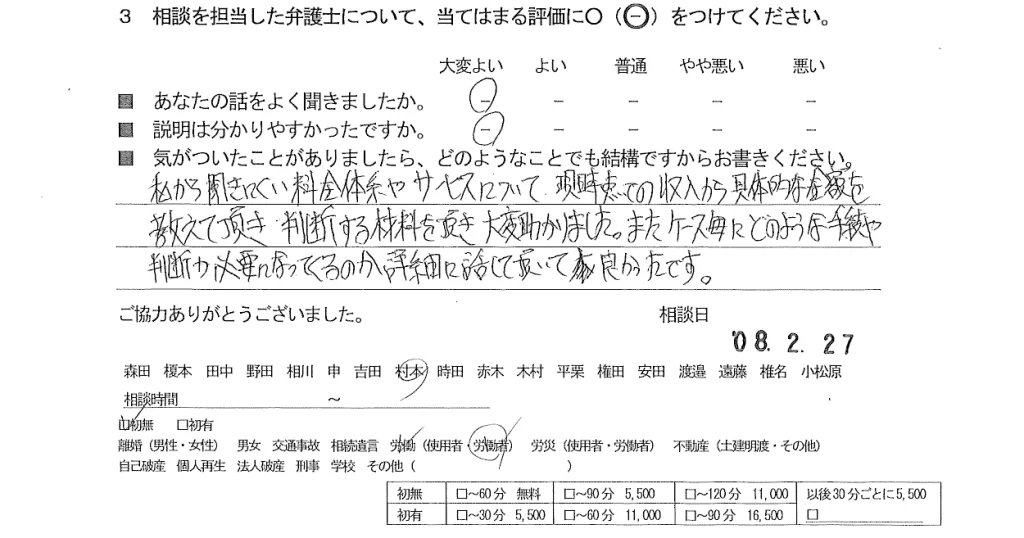 3 相談を担当した弁護士について、当てはまる評価に○（㊀）をつけてください。
大変よい よい 普通 やや悪い 悪い
■ あなたの話をよく聞きましたか。 － － － － －
■ 説明は分かりやすかったですか。 － － － － －
■ 気がついたことがありましたら、どのようなことでも結構ですからお書きください。
私から聞きにくい料金体系やサービスについて、現時点での収入から具体的な金額を
教えて頂き 判断する材料を頂き 大変助かりました。またケース毎にどのような手続や
判断が必要になってくるのか、詳細に話して頂いて 良かったです。
ご協力ありがとうございました。 相談日
'08. 2. 27
森田 榎本 田中 野田 相川 申 吉田 村本 時田 赤木 木村 平栗 権田 安田 渡邉 遠藤 椎名 小松原
相談時間 ～
□初無 □初有
離婚（男性・女性） 男女 交通事故 相続遺言 労働（使用者・労働者） 労災（使用者・労働者） 不動産（土建明渡・その他）
自己破産 個人再生 法人破産 刑事 学校 その他（ ）
初無 □～60分 無料 □～90分 5,500 □～120分 11,000 以後30分ごとに5,500
初有 □～30分 5,500 □～60分 11,000 □～90分 16,500 □